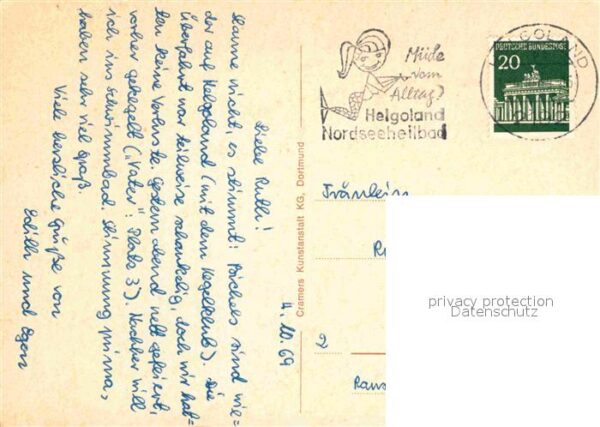 4.10.69
Liebe Ruth!
Staune nicht, es stimmt! Pöschels sind wie=
der auf Helgoland (mit dem Kegelklub). Die
Überfahrt war teilweise schaukelig, doch wir hat=
ten keine Verluste. Gestern abend nett gefeiert,
vorher gekegelt ("Vater": Platz 3). Nachher will
ich ins Schwimmbad. Stimmung prima,
haben sehr viel Spaß.
Viele herzliche Grüße von
Edith und Egon
Cramers Kunstanstalt KG, Dortmund
Müde
vom
Alltag?
Helgoland
Nordseeheilbad
HELGOLAND
DEUTSCHE BUNDESPOST
20
Fräulein
2
privacy protection
Datenschutz